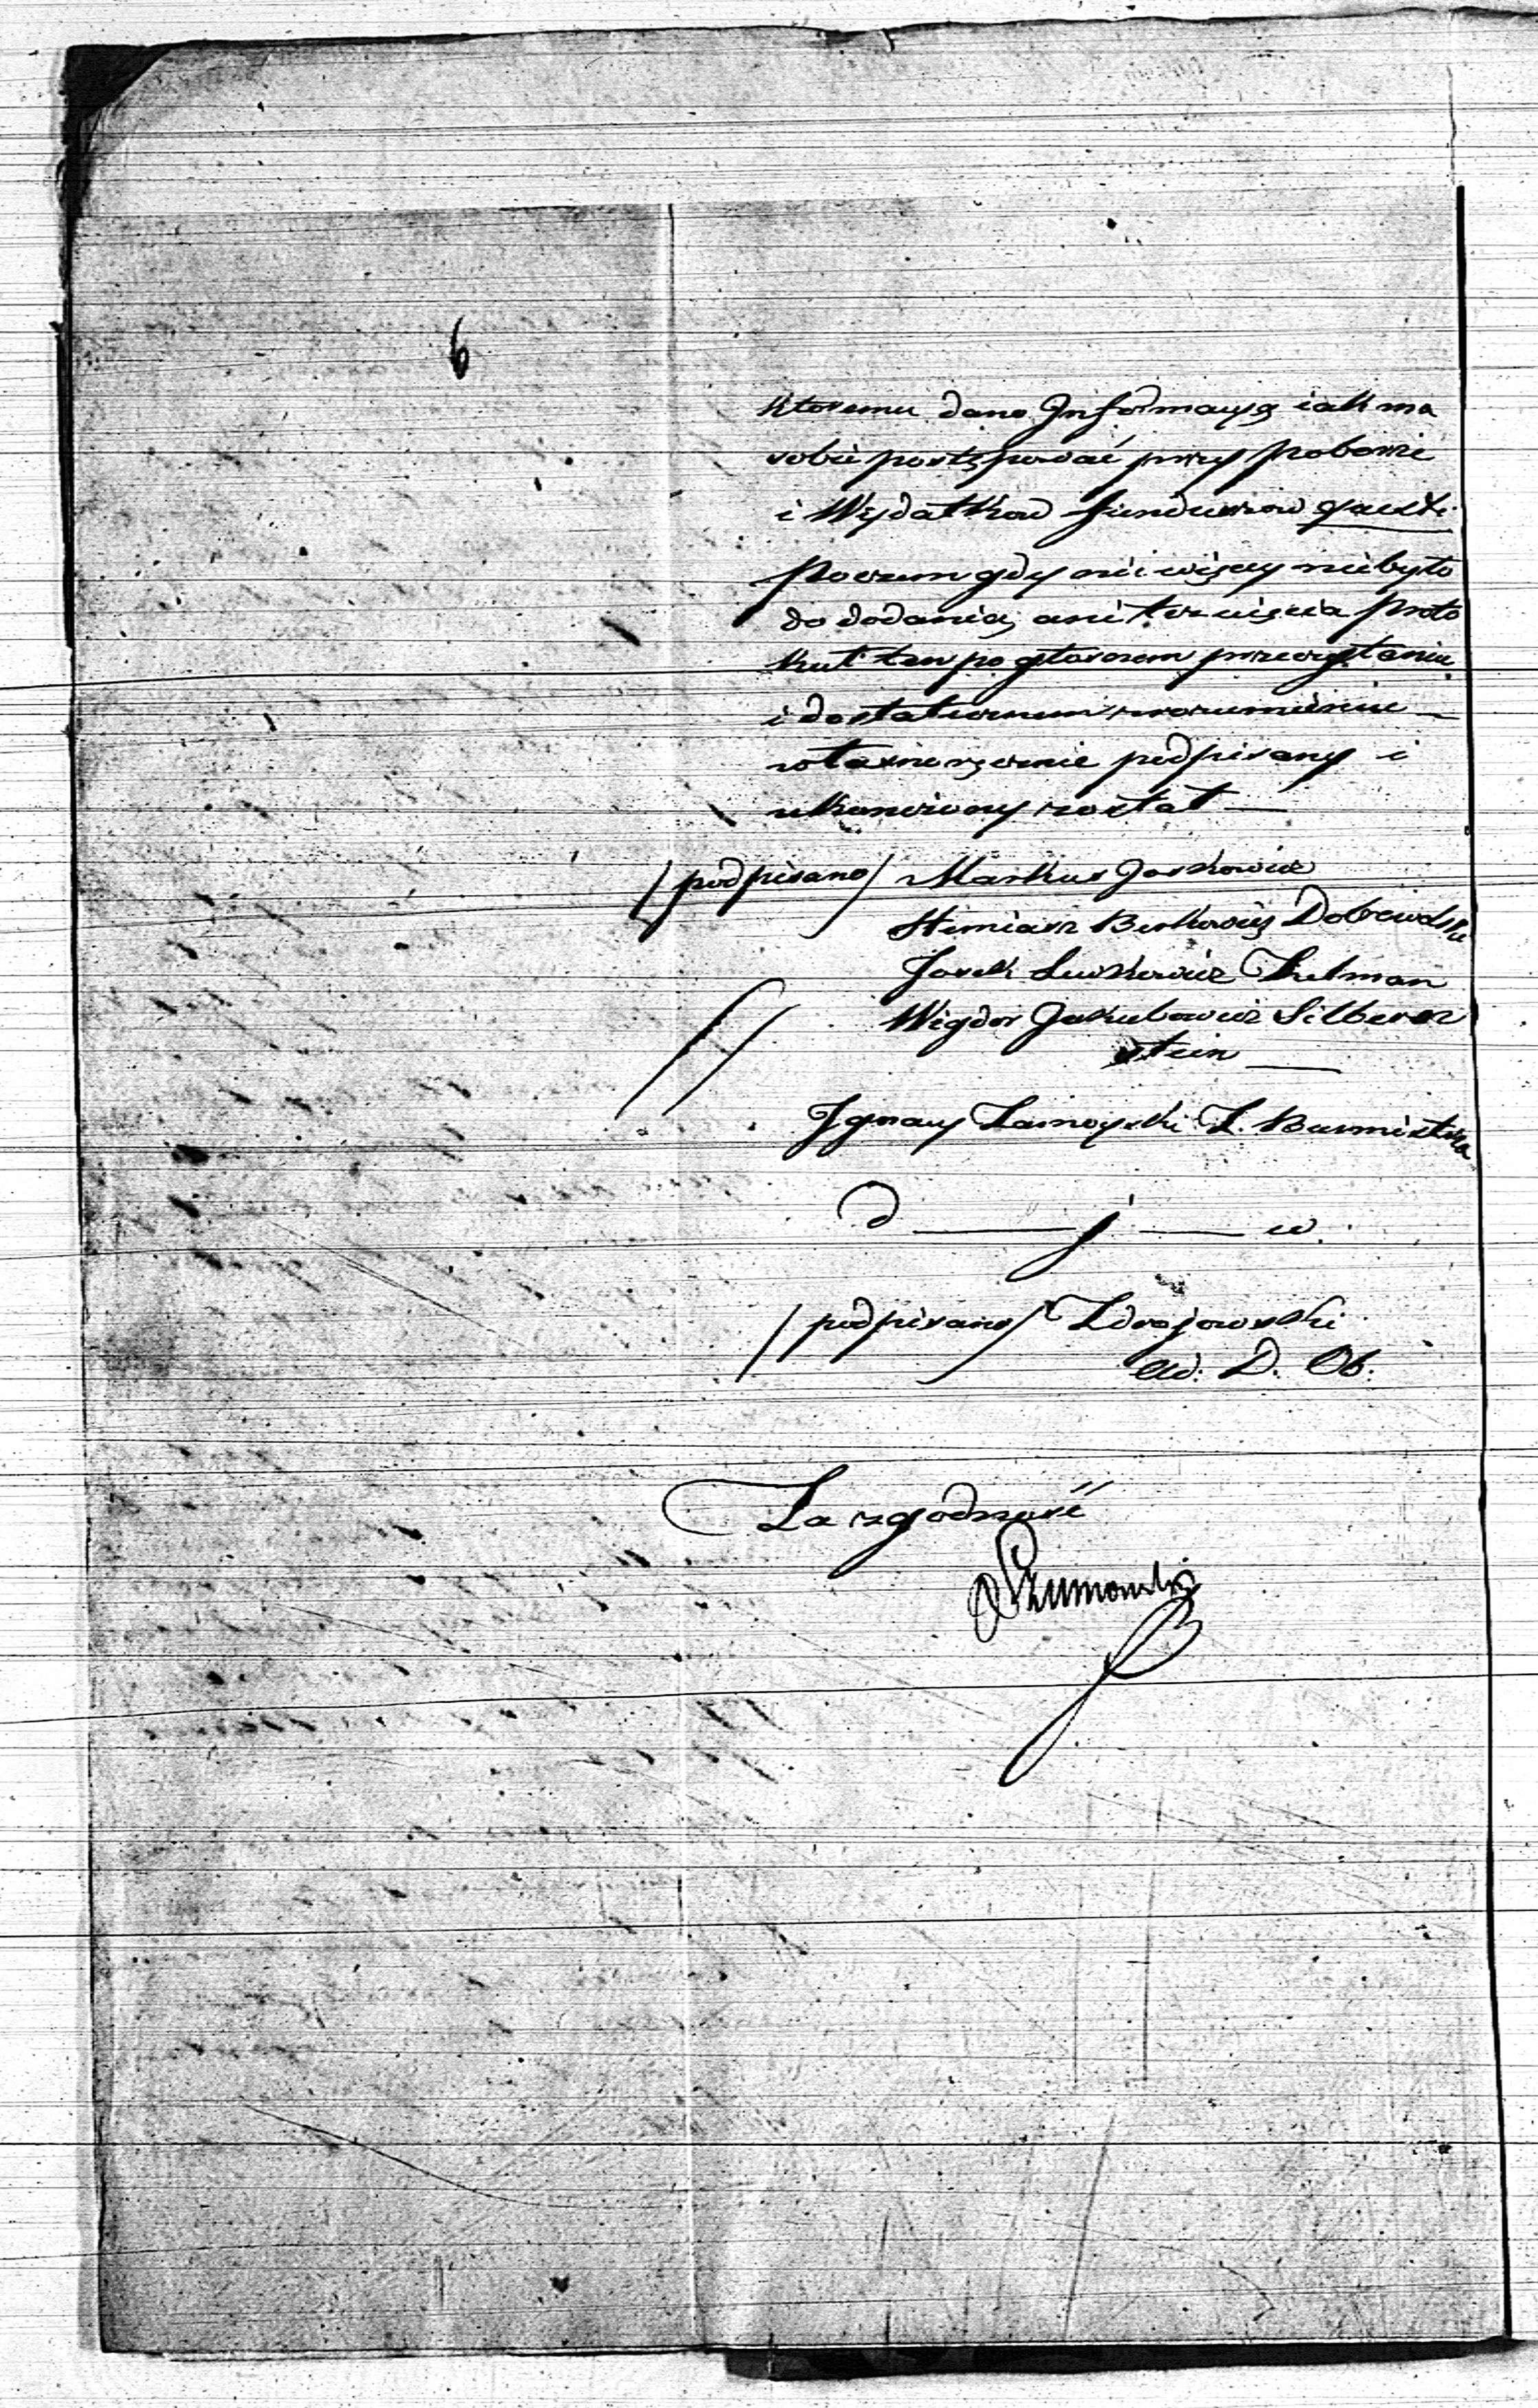 6
któremu dano Informacyą iak ma
sobie postępować przy poborze
i Wydatków funduszów
Poczem gdy nic więcey niebyło
do dodania, ani Proto
kuł ten po głosnem przeczytaniu
i dostatecznem zrozumieniu —
własnoręcznie podpisany i
ukończony został —
/podpisano/ Markus Joskowicz
Berkowicz
Josek Lewkowicz Zelman
Wigdor Jakubowicz Silber
stein —
Ignacy Zamoyski Z. Burmistrza
d — j — w.
/podpisano/ Zdrojowski
Ad. D. Ob.
Za zgodność
Szumowski